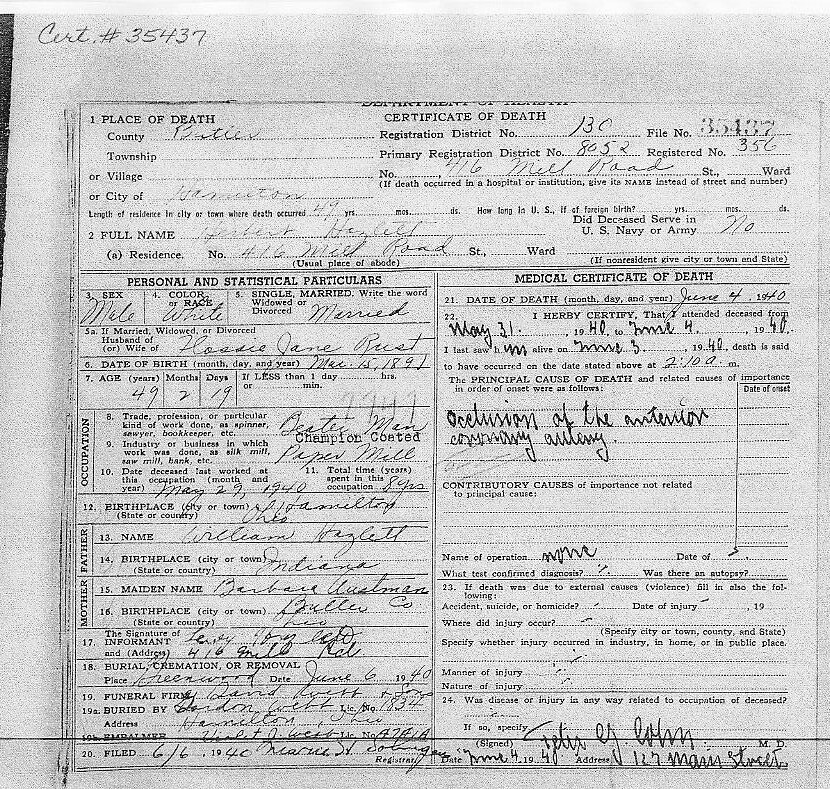 Cert. # 35437
DEPARTMENT OF HEALTH
CERTIFICATE OF DEATH
1 PLACE OF DEATH
County Butler
Township
or Village
or City of Hamilton
Registration District No. 130 File No. 35437
Primary Registration District No. 8052 Registered No. 356
No. 416 Mill Road St., Ward
(If death occurred in a hospital or institution, give its NAME instead of street and number)
Length of residence in city or town where death occurred 49 yrs. mos. ds. How long in U. S., if of foreign birth? yrs. mos. ds.
2 FULL NAME Herbert Hazlett
Did Deceased Serve in
U. S. Navy or Army No
(a) Residence. No. 416 Mill Road St., Ward
(Usual place of abode) (If nonresident give city or town and State)
PERSONAL AND STATISTICAL PARTICULARS
3. SEX 4. COLOR or RACE 5. SINGLE, MARRIED, Write the word
Widowed or
Divorced
Male White Married
5a. If Married, Widowed, or Divorced
Husband of
(or) Wife of Flossie Jane Rust
6. DATE OF BIRTH (month, day, and year) Mar. 15, 1891
7. AGE (years) Months Days If LESS than 1 day hrs.
or min.
49 2 19
OCCUPATION
8. Trade, profession, or particular
kind of work done, as spinner,
sawyer, bookkeeper, etc. Beater Man
9. Industry or business in which
work was done, as silk mill,
saw mill, bank, etc. Champion Coated
Paper Mill
10. Date deceased last worked at
this occupation (month and
year) May 29, 1940
11. Total time (years)
spent in this
occupation 8 yrs
12. BIRTHPLACE (city or town) Hamilton
(State or country) Ohio
FATHER
13. NAME William Hazlett
14. BIRTHPLACE (city or town) Indiana
(State or country)
MOTHER
15. MAIDEN NAME Barbara
16. BIRTHPLACE (city or town) Butler Co
(State or country) Ohio
17. The Signature of
INFORMANT
and (Address) 416 Mill Rd
18. BURIAL, CREMATION, OR REMOVAL
Place Greenwood Date June 6 1940
19. FUNERAL FIRM David Webb & Sons
19a. BURIED BY Gordon Webb Lic. No. 1834
Address Hamilton, Ohio
19b. EMBALMER Violet J. Webb Lic No.
20. FILED 6/6, 1940
Registrar
MEDICAL CERTIFICATE OF DEATH
21. DATE OF DEATH (month, day, and year) June 4. 1940
22. I HERBY CERTIFY, That I attended deceased from
May 31. 1940 to June 4. 1940.
I last saw him alive on June 3 1940, death is said
to have occurred on the date stated above at 2:10 a. m.
The PRINCIPAL CAUSE OF DEATH and related causes of importance
in order of onset were as follows: Date of onset
Occlusion of the anterior
coronary artery.
CONTRIBUTORY CAUSES of importance not related
to principal cause:
Name of operation none Date of
What test confirmed diagnosis? Was there an autopsy?
23. If death was due to external causes (violence) fill in also the following:
Accident, suicide, or homicide? Date of injury , 19
Where did injury occur?
(Specify city or town, county, and State)
Specify whether injury occurred in industry, in home, or in public place.
Manner of injury
Nature of injury
24. Was disease or injury in any way related to occupation of deceased?
If so, specify
(Signed) M. D.
Date June 4, 1940 Address 127 Main Street